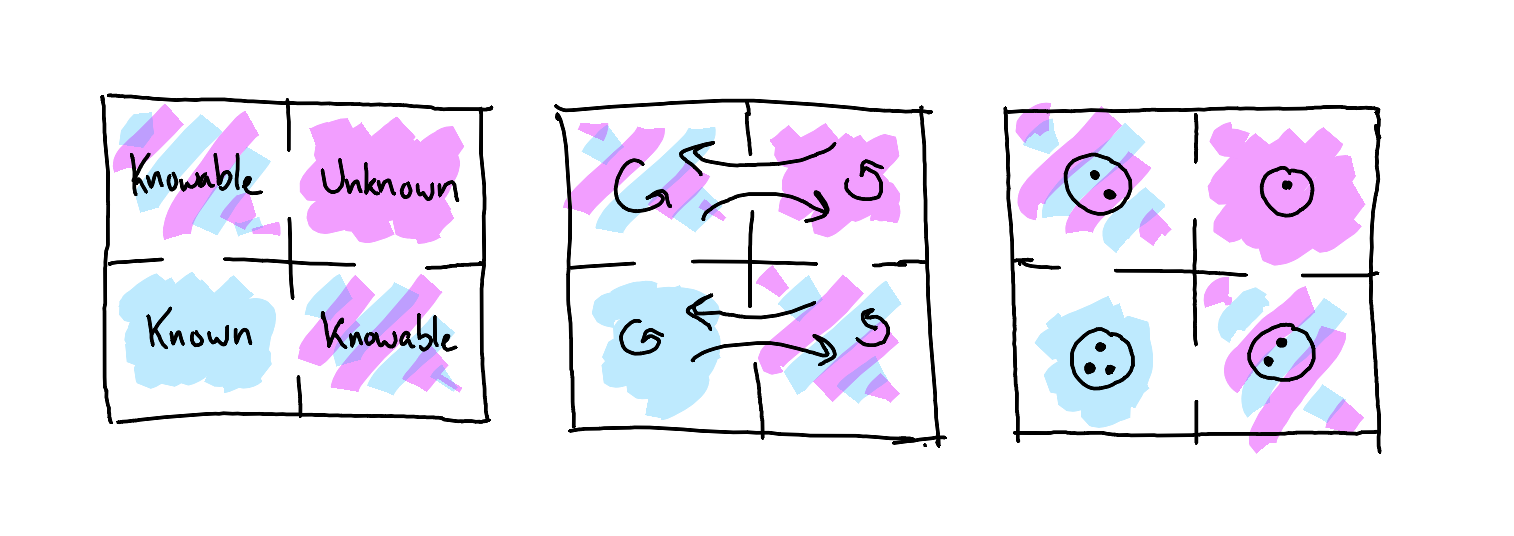 Knowable
Unknown
Known
Knowable